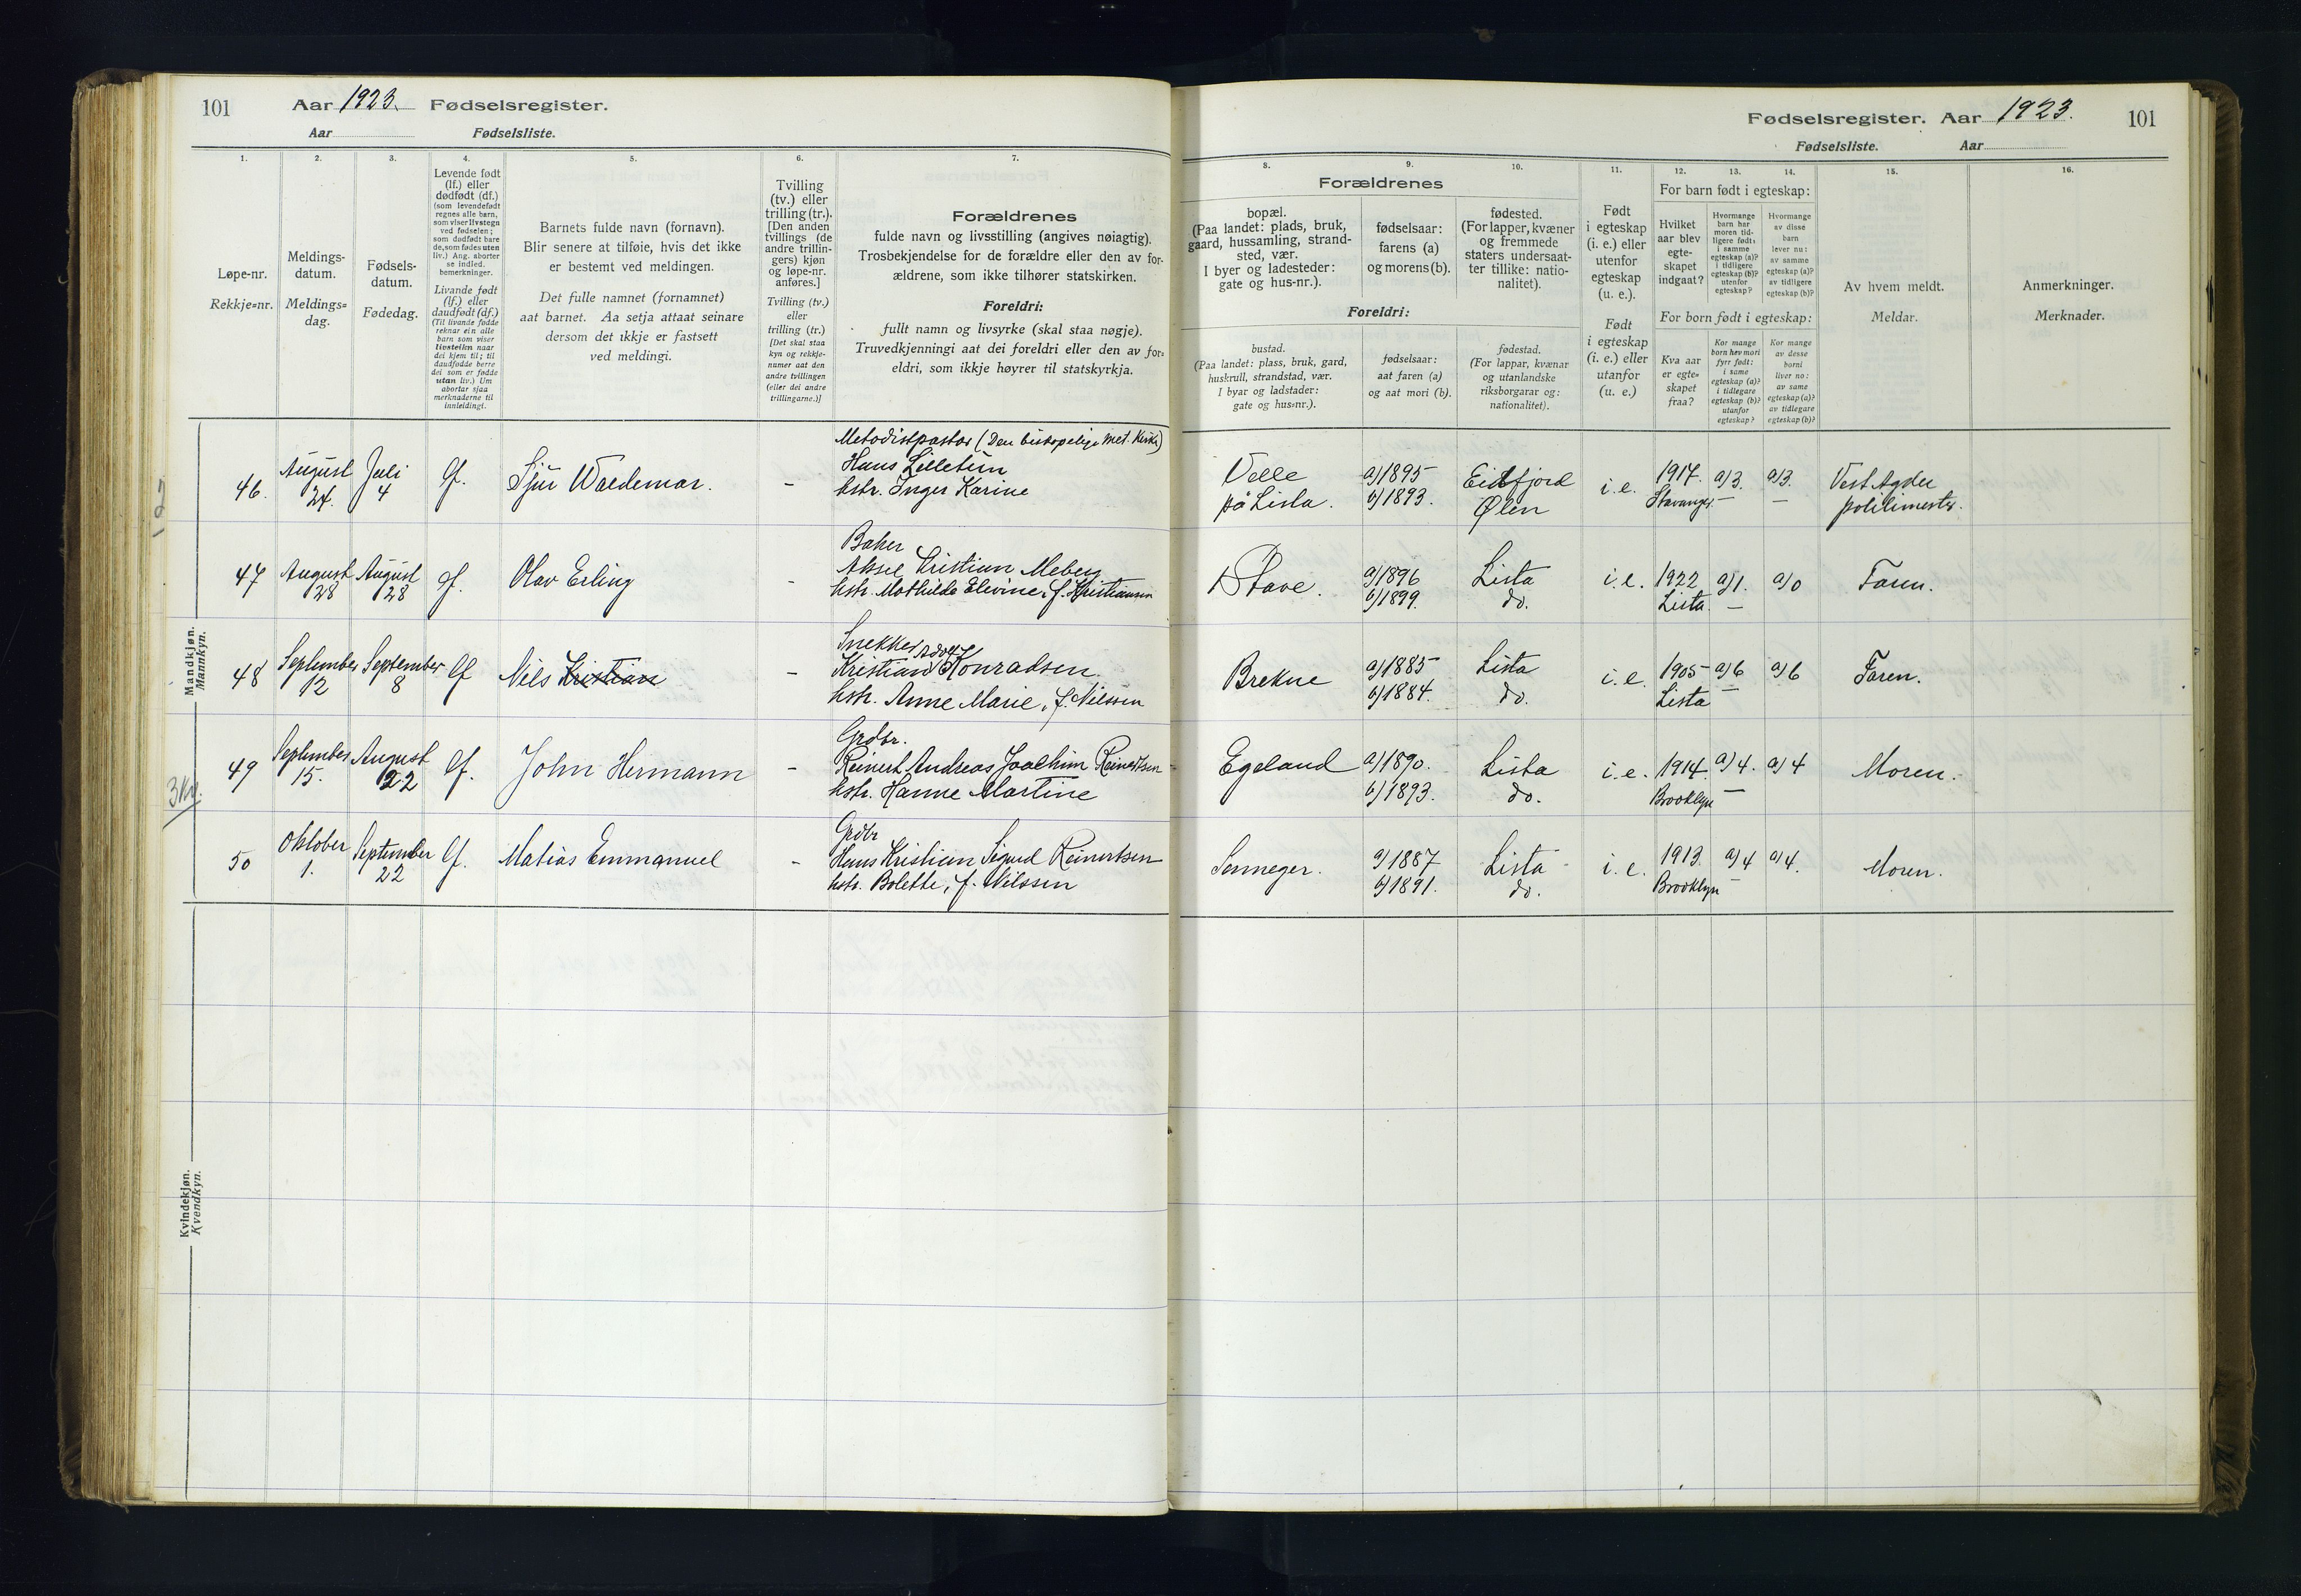 101 Aar 1923. Fødselsregister.
Aar Fødselsliste.
1.
Løpe-nr.
Rekkje=nr.
2.
Meldings-
datum.
Meldings=
dag.
3.
Fødsels-
datum.
Fødedag.
4.
Levende født
(lf.) eller
dødfødt (df.)
(som levendefødt
regnes alle barn,
som viser livstegn
ved fødselen;
som dødfødt bare
de, som fødes uten
liv.) Ang. aborter
se indled.
bemerkninger.
Livande født
(lf.) eller
daudfødt (df.)
(Til livande fødde
reknar ein alle
barn som viser
livsteikn naar
dei kjem til; til
daudfødde berre
dei som er fødde
utan liv.) Um
abortar sjaa
merknaderne til
innleidingi.
5.
Barnets fulde navn (fornavn).
Blir senere at tilføie, hvis det ikke
er bestemt ved meldingen.
Det fulle namnet (fornamnet)
aat barnet. Aa setja attaat seinare
dersom det ikkje er fastsett
ved meldingi.
6.
Tvilling
(tv.) eller
trilling (tr.).
[Den anden
tvillings (de
andre trillin-
gers) kjøn
og løpe-nr.
anføres.]
Tvilling (tv.)
eller
trilling (tr.)
[Det skal staa
kyn og rekkje-
numer aat den
andre tvillingen
(eller dei andre
trillingarne.)]
7.
Forældrenes
fulde navn og livsstilling (angives nøiagtig).
Trosbekjendelse for de forældre eller den av for-
ældrene, som ikke tilhører statskirken.
Foreldri:
fullt namn og livsyrke (skal staa nøgje).
Truvedkjenningi aat dei foreldri eller den av for=
eldri, som ikkje høyrer til statskyrkja.
Mandkjøn.
Mannkyn.
46.
August
24.
Juli
4
lf.
Sjur Waldemar.
-
Metodistpastor (Den biskopelige Met. Kirke)
Hans Lilletun
hstr. Inger Karine
47
August
28
August
28
lf.
Olav Erling
-
Baker
Aksel Kristian Meberg
hstr. Mathilde Elevine, f. Kristiansen
48
September
12
September
8
lf
Nils Kristian
-
Snekker
Kristian Konradsen
hstr. Anne Marie, f. Nilssen
3 kv.
49
September
15.
August
22
lf.
John Hermann
-
Grdbr.
Reinert Andreas Joachim Reinertsen
hstr. Hanne Martine
50
Oktober
1.
September
22
lf.
Matias Emmanuel
-
Grdbr
Hans Kristian Sigurd Reinertsen
hstr. Bolette, f. Nilssen
Kvindekjøn.
Kvendkyn.
Fødselsregister. Aar 1923. 101
Fødselsliste. Aar
8.
Forældrenes
bopæl.
(Paa landet: plads, bruk,
gaard, hussamling, strand-
sted, vær.
I byer og ladesteder:
gate og hus-nr.).
Foreldri:
bustad.
(Paa landet: plass, bruk, gard,
huskrull, strandstad, vær.
I byar og ladstader:
gate og hus=nr.).
9.
fødselsaar:
farens (a)
og morens (b).
fødselsaar:
aat faren (a)
og aat mori (b).
10.
fødested.
(For lapper, kvæner
og fremmede
staters undersaat-
ter tillike: natio-
nalitet).
fødestad.
(For lappar, kvænar
og utanlandske
riksborgarar og:
nationalitet).
11.
Født
i egteskap
(i. e.) eller
utenfor
egteskap
(u. e.).
Født
i egteskap
(i. e.) eller
utanfor
(u. e.)
12. 13. 14.
For barn født i egteskap:
Hvilket
aar blev
egte-
skapet
indgaat?
Hvormange
barn har
moren tid-
ligere født:
i samme
egteskap (a)?
i tidligere
egteskap (b)?
utenfor
egteskap?
Hvormange
av disse
barn
lever nu:
av samme
egteskap (a)?
av tidligere
egteskap (b)?
For born født i egteskap:
Kva aar
er egte=
skapet
fraa?
Kor mange
born hev mori
fyrr født:
i same
egteskap (a)?
i tidlegare
egteskap (b)?
utanfor
egteskap?
Kor mange
av desse
borni
liver no:
av same
egteskap (a)?
av tidlegare
egteskap (b)?
15.
Av hvem meldt.
Meldar.
16.
Anmerkninger.
Merknader.
Velle
på Lista.
a) 1895
b) 1893.
Eidfjord
Ølen
i. e.
1917.
Stavanger
a) 3.
-
a) 3.
-
Vest Agder
politimester.
Stave.
a) 1896
b) 1899.
Lista
do.
i. e.
1922
Lista.
a) 1.
-
a) 0
Faren.
Brekne
a) 1885
b) 1884.
Lista
do.
i. e.
1905
Lista
a) 6
-
a) 6
Faren.
Egeland
a) 1890.
b) 1893.
Lista
do.
i. e.
1914.
Brooklyn
a) 4.
-
a) 4
Moren.
Senneger.
a) 1887
b) 1891.
Lista
do.
i. e.
1913.
Brooklyn
a) 4
-
a) 4.
Moren.